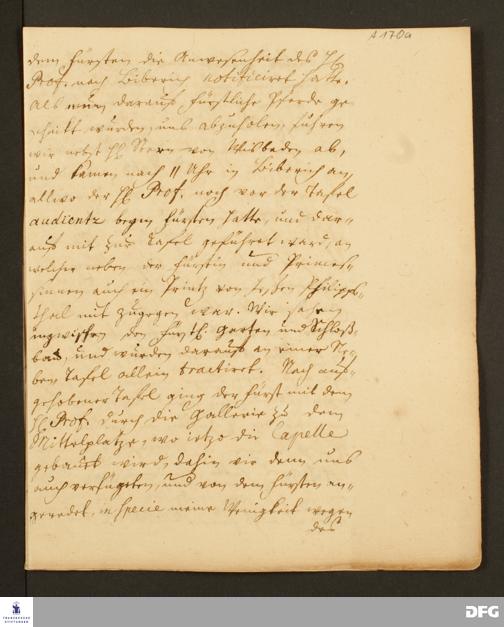 A 170a
dem Fürsten die Anwesenheit des H.
Prof. nach Biberich notificiret hatte.
Als nun darauf Fürstliche Pferde ge-
schickt wurden, uns abzuholen, fuhren
wir nebst H. Stern von Wisbaden ab,
und kamen nach 11 Uhr in Biberich an,
allwo der H. Prof. noch vor der Tafel
audientz beym Fürsten hatte, und dar-
auf mit zur Tafel geführet ward, an
welcher neben der Fürstin und Princes-
sinnen auch ein Printz von Hessen Philipps-
thal mit zugegen war. Wir sahen
inzwischen den Fürstl. Garten und Schloß-
bau, und wurden darauf an einer Ne-
ben Tafel allein tractiret. Nach auf-
gehobener Tafel ging der Fürst mit dem
H. Prof. durch die Gallerie zu dem
Mittelplatze, wo ietzo die Capelle
gebauet wird, dahin wir denn uns
auch verfügeten, und von dem Fürsten an-
geredet, in specie meine Wenigkeit wegen
des
FRANCKESCHE
STIFTUNGEN
DFG